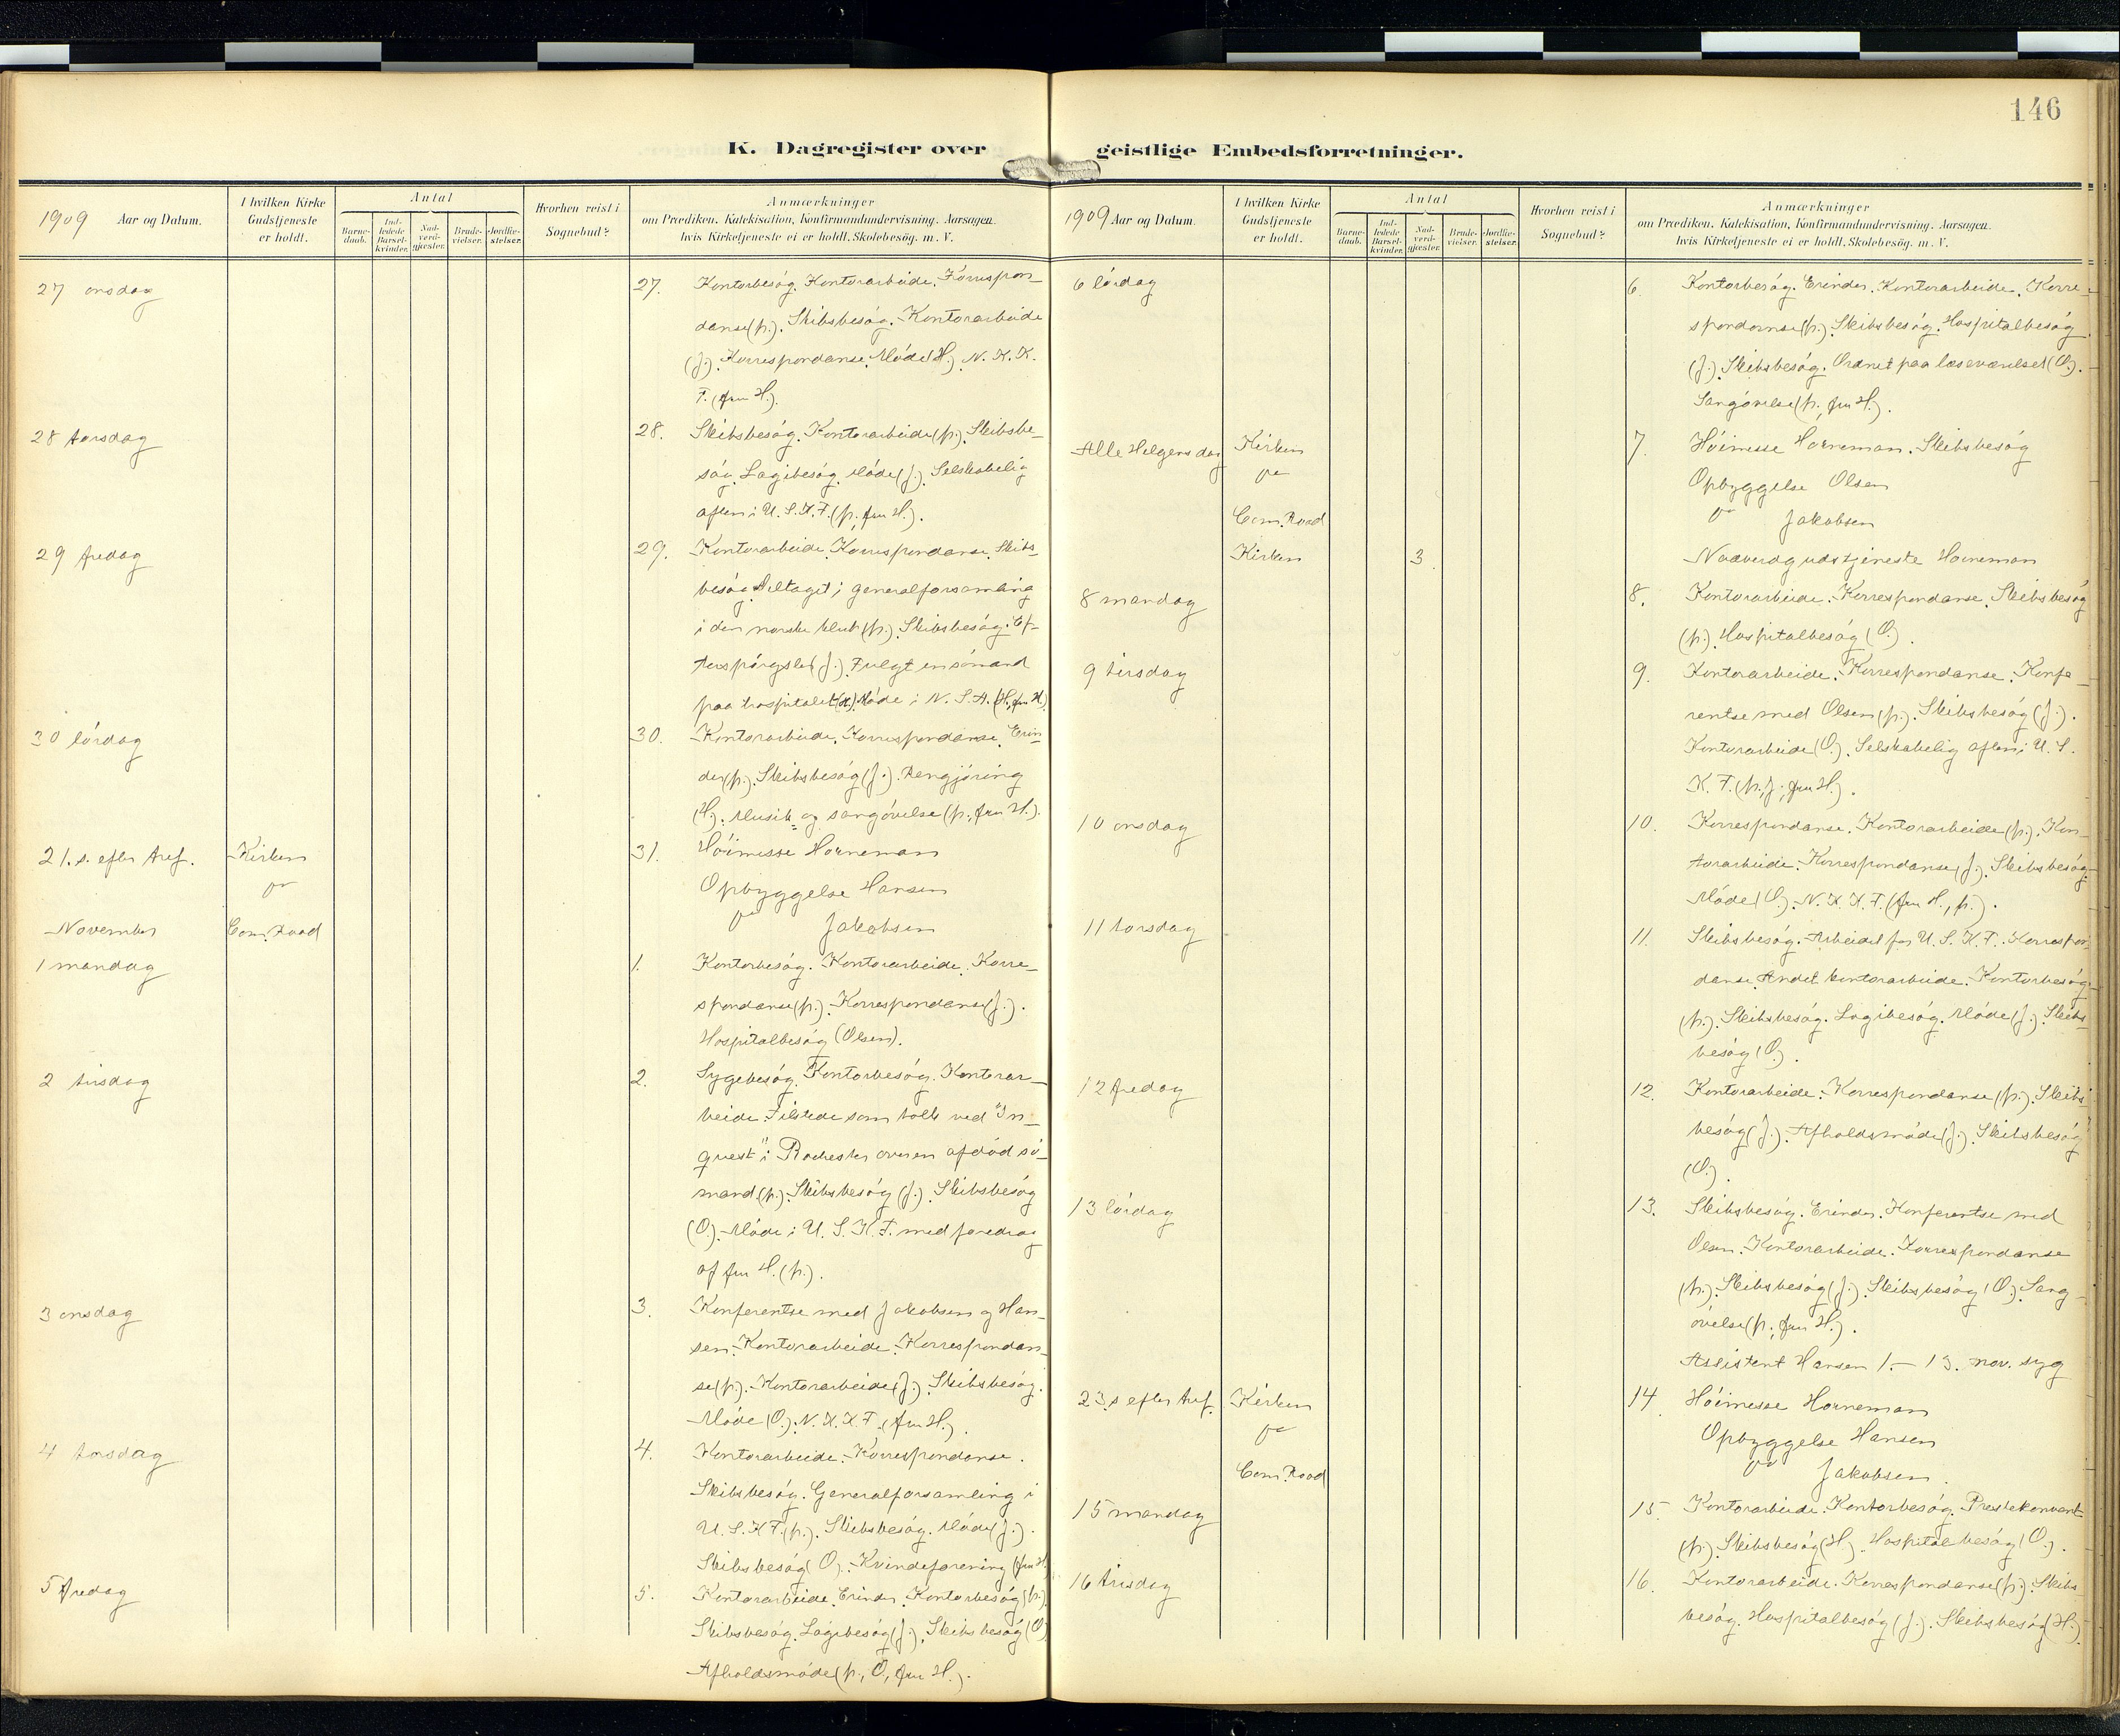 146
K. Dagregister over
1909 Aar og Datum.
I hvilken Kirke Gudstjeneste er holdt.
Antal
Barnedaab.
Indledede Barselkvinder.
Nadverdgjæster.
Brudevielser.
Jordfæstelser.
Hvorhen reist i Sognebud?
Anmærkninger
om Prædiken, Katekisation, Konfirmandundervisning. Aarsagen,
hvis Kirketjeneste ei er holdt. Skolebesög. m. V.
27 onsdag
27. Kontorbesøg. Kontorarbeide. Korrespon-
danse (p.). Skibsbesøg. Kontorarbeide
(J.). Korrespondanse. Møde (H.). N. K. K.
F. (fru H.).
28 torsdag
28. Skibsbesøg. Kontorarbeide (p.). Skibsbe-
søg. Logibesøg. Møde (J.). Selskabelig
aften i U. S. K. F. (p., fru H.).
29 fredag
29. Kontorarbeide. Korrespondanse. Skibs-
besøg. Deltaget i generalforsamling
i den norske klub (p.). Skibsbesøg. Ef-
terspørgsler (J.). Fulgt en sømand
paa hospitalet (H.). Møde i N. S. A. (H., fru H.)
30 lørdag
30. Kontorarbeide. Korrespondanse. Erin-
der (p.). Skibsbesøg (J.). Rengjøring
(H.). Musik- og sangøvelse (p., fru H.).
21. s. efter tref. Kirken
31. Høimesse Horneman
Opbyggelse Hansen
November Com. Road
Jakobsen
1 mandag
1. Kontorbesøg. Kontorarbeide. Korre-
spondanse (p.). Korrespondanse (J.).
Hospitalbesøg (Olsen).
2 tirsdag
2. Sygebesøg. Kontorbesøg. Kontorar-
beide. Tilstede som tolk ved "In-
quest" i Rochester over en afdød sø-
mand (p.). Skibsbesøg (J.). Skibsbesøg
(O.). Møde i U. S. K. F. med foredrag
af fru H. (p.).
3 onsdag
3. Konferentse med Jakobsen og Han-
sen. Kontorarbeide. Korrespondan-
se (p.). Kontorarbeide (J.). Skibsbesøg.
Møde (O.). N. K. K. F. (fru H.).
4 torsdag
4. Kontorarbeide. Korrespondanse.
Skibsbesøg. Generalforsamling i
U. S. K. F. (p.). Skibsbesøg. Møde (J.).
Skibsbesøg (O.). Kvindeforening (fru H.
5 fredag
5. Kontorarbeide. Erinder. Kontorbesøg (p.).
Skibsbesøg. Logibesøg (J.). Skibsbesøg (O.)
Afholdsmøde (p., O., fru H.).
geistlige Embedsforretninger.
1909 Aar og Datum.
I hvilken Kirke Gudstjeneste er holdt.
Antal
Barnedaab.
Indledede Barselkvinder.
Nadverdgjæster.
Brudevielser.
Jordfæstelser.
Hvorhen reist i Sognebud?
Anmærkninger
om Prædiken, Katekisation, Konfirmandundervisning. Aarsagen,
hvis Kirketjeneste ei er holdt. Skolebesög. m. V.
6 lørdag
6. Kontorbesøg. Erinder. Kontorarbeide. Korre-
spondanse (p.). Skibsbesøg. Hospitalbesøg
(J.). Skibsbesøg. Ordnet paa læseværelset (O.).
Sangøvelse (p., fru H.).
Alle Helgens dag Kirken
7. Høimesse Horneman. Skibsbesøg
Opbyggelse Olsen
Com. Road
Jakobsen
Kirken 3
Nadverdgudstjeneste Horneman
8 mandag
8. Kontorarbeide. Korrespondanse. Skibsbesøg
(p.). Hospitalbesøg (O.).
9 tirsdag
9. Kontorarbeide. Korrespondanse. Konfe-
rentse med Olsen (p.). Skibsbesøg (J.).
Kontorarbeide (O.). Selskabelig aften i U. S.
K. F. (p., J., fru H.).
10 onsdag
10. Korrespondanse. Kontorarbeide (p.). Kon-
torarbeide. Korrespondanse (J.). Skibsbesøg.
Møde (O.). N. K. K. F. (fru H., p.).
11 torsdag
11. Skibsbesøg. Arbeidet for U. S. K. F. Korrespon-
danse. Andet kontorarbeide. Kontorbesøg
(p.). Skibsbesøg. Logibesøg. Møde (J.). Skibs-
besøg (O.).
12 fredag
12. Kontorarbeide. Korrespondanse (p.). Skibs-
besøg (J.). Afholdsmøde (J.). Skibsbesøg
(O.).
13 lørdag
13. Skibsbesøg. Erinder. Konferentse med
Olsen. Kontorarbeide. Korrespondanse
(p.). Skibsbesøg (J.). Skibsbesøg (O.). Sang-
øvelse (p., fru H.).
Assistent Hansen 1.– 13. nov. syg
23. s efter tref. Kirken
14. Høimesse Horneman
Opbyggelse Hansen
Com. Road
Jakobsen.
15 mandag
15. Kontorarbeide. Kontorbesøg. Prestekonvent
(p.). Skibsbesøg (H.). Hospitalbesøg (O.).
16 tirsdag
16. Kontorarbeide. Korrespondanse (p.). Skibs-
besøg. Hospitalbesøg (J.). Skibsbesøg (H.).